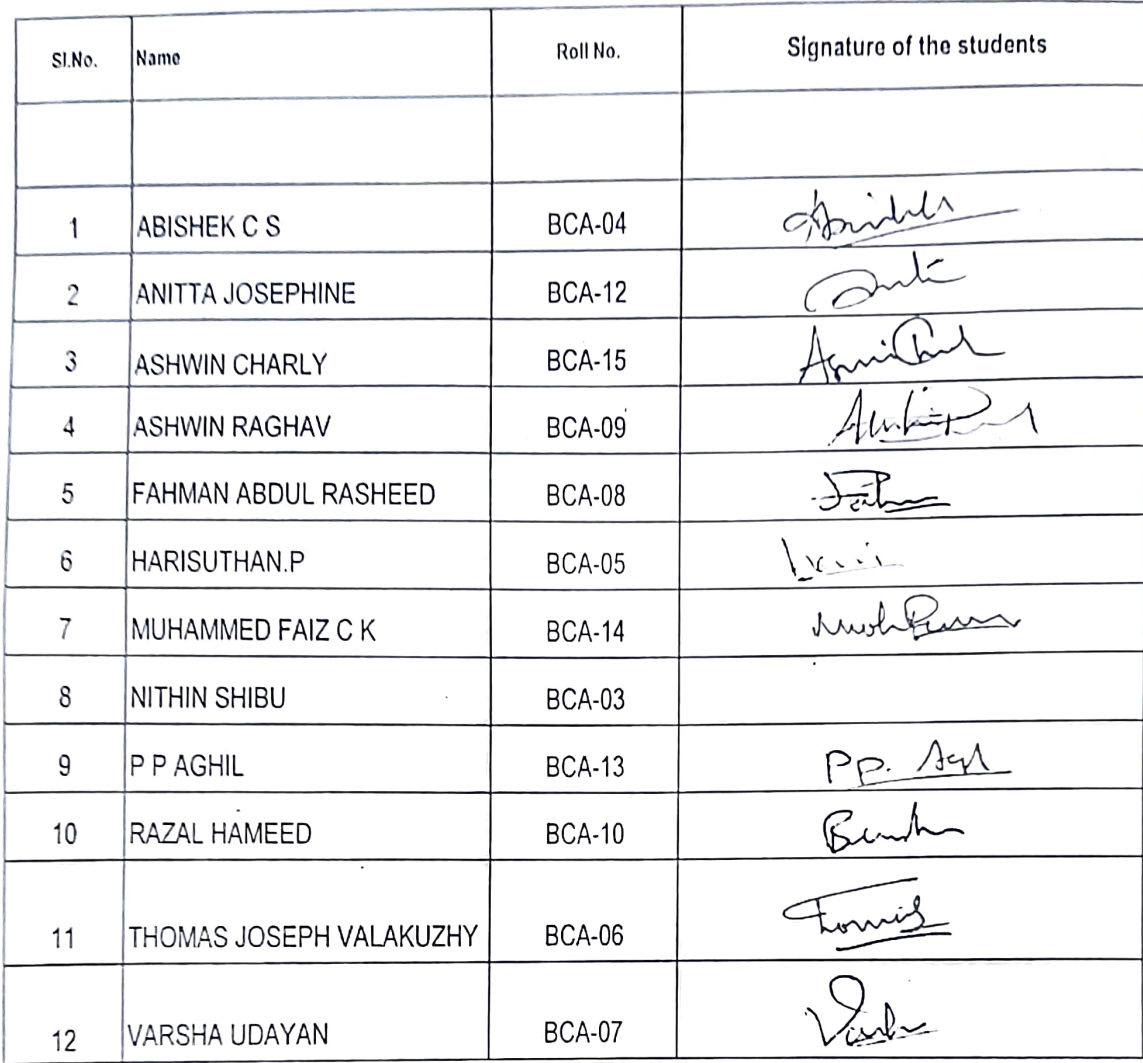 Sl.No. Name Roll No. Signature of the students
1 ABISHEK C S BCA-04
2 ANITTA JOSEPHINE BCA-12
3 ASHWIN CHARLY BCA-15
4 ASHWIN RAGHAV BCA-09
5 FAHMAN ABDUL RASHEED BCA-08
6 HARISUTHAN.P BCA-05
7 MUHAMMED FAIZ C K BCA-14
8 NITHIN SHIBU BCA-03
9 P P AGHIL BCA-13 PP.
10 RAZAL HAMEED BCA-10
11 THOMAS JOSEPH VALAKUZHY BCA-06
12 VARSHA UDAYAN BCA-07